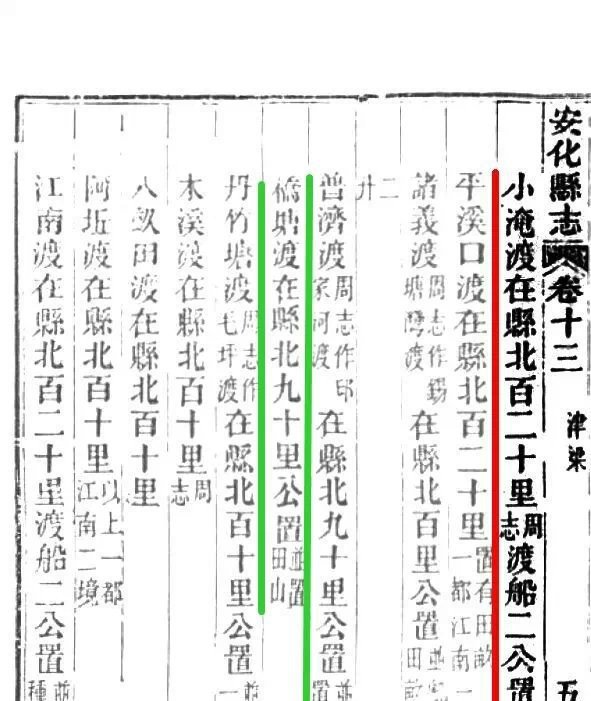 安化縣志 卷十三 津梁 五
小淹渡在縣北百二十里周志渡船二公置
平溪口渡在縣北百二十里置有田畝一都江南一
諸義渡周志作錫塘灣渡在縣北百里公置並置田畝
二廾
普濟渡周志作邸家河渡在縣北九十里公置並置
橋塘渡在縣北九十里公置並置田山
丹竹塘渡周志作毛坪渡在縣北百十里公置並一
木溪渡在縣北百十里周志
八畝田渡在縣北百十里
阿坵渡在縣北百十里以上一都江南二境
江南渡在縣北百二十里渡船二公置並種